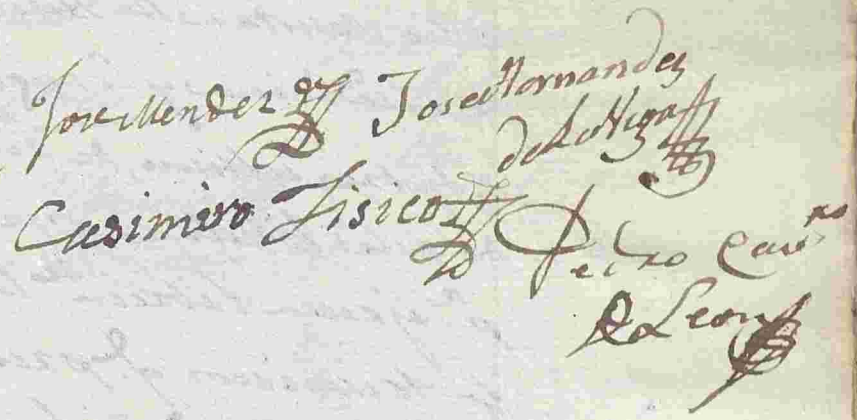 Jose Mendez Jose Hernandez
de la Vega
Casimiro Fisico Pedro
de Leon